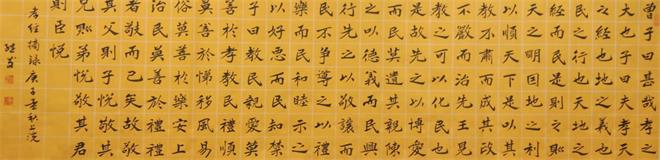 曾子曰甚哉孝之
大也子曰夫孝天
之經也地之義也
民之行也天地之
經而民是則之則
天之明因地之利
以順天下是以其
教不肅而成其政
不嚴而治先王見
教之可以化民也
是故先之以博愛
而民莫遺其親陳
之以德義而民興
行先之以敬讓而
民不爭導之以禮
樂而民和睦示之
以好惡而民知禁
子曰教民親愛莫
善於孝教民禮順
莫善於悌移風易
俗莫善於樂安上
治民莫善於禮禮
者敬而已矣故敬
其父則子悅敬其
兄則弟悅敬其君
則臣悅
孝經摘錄庚子孟秋上浣